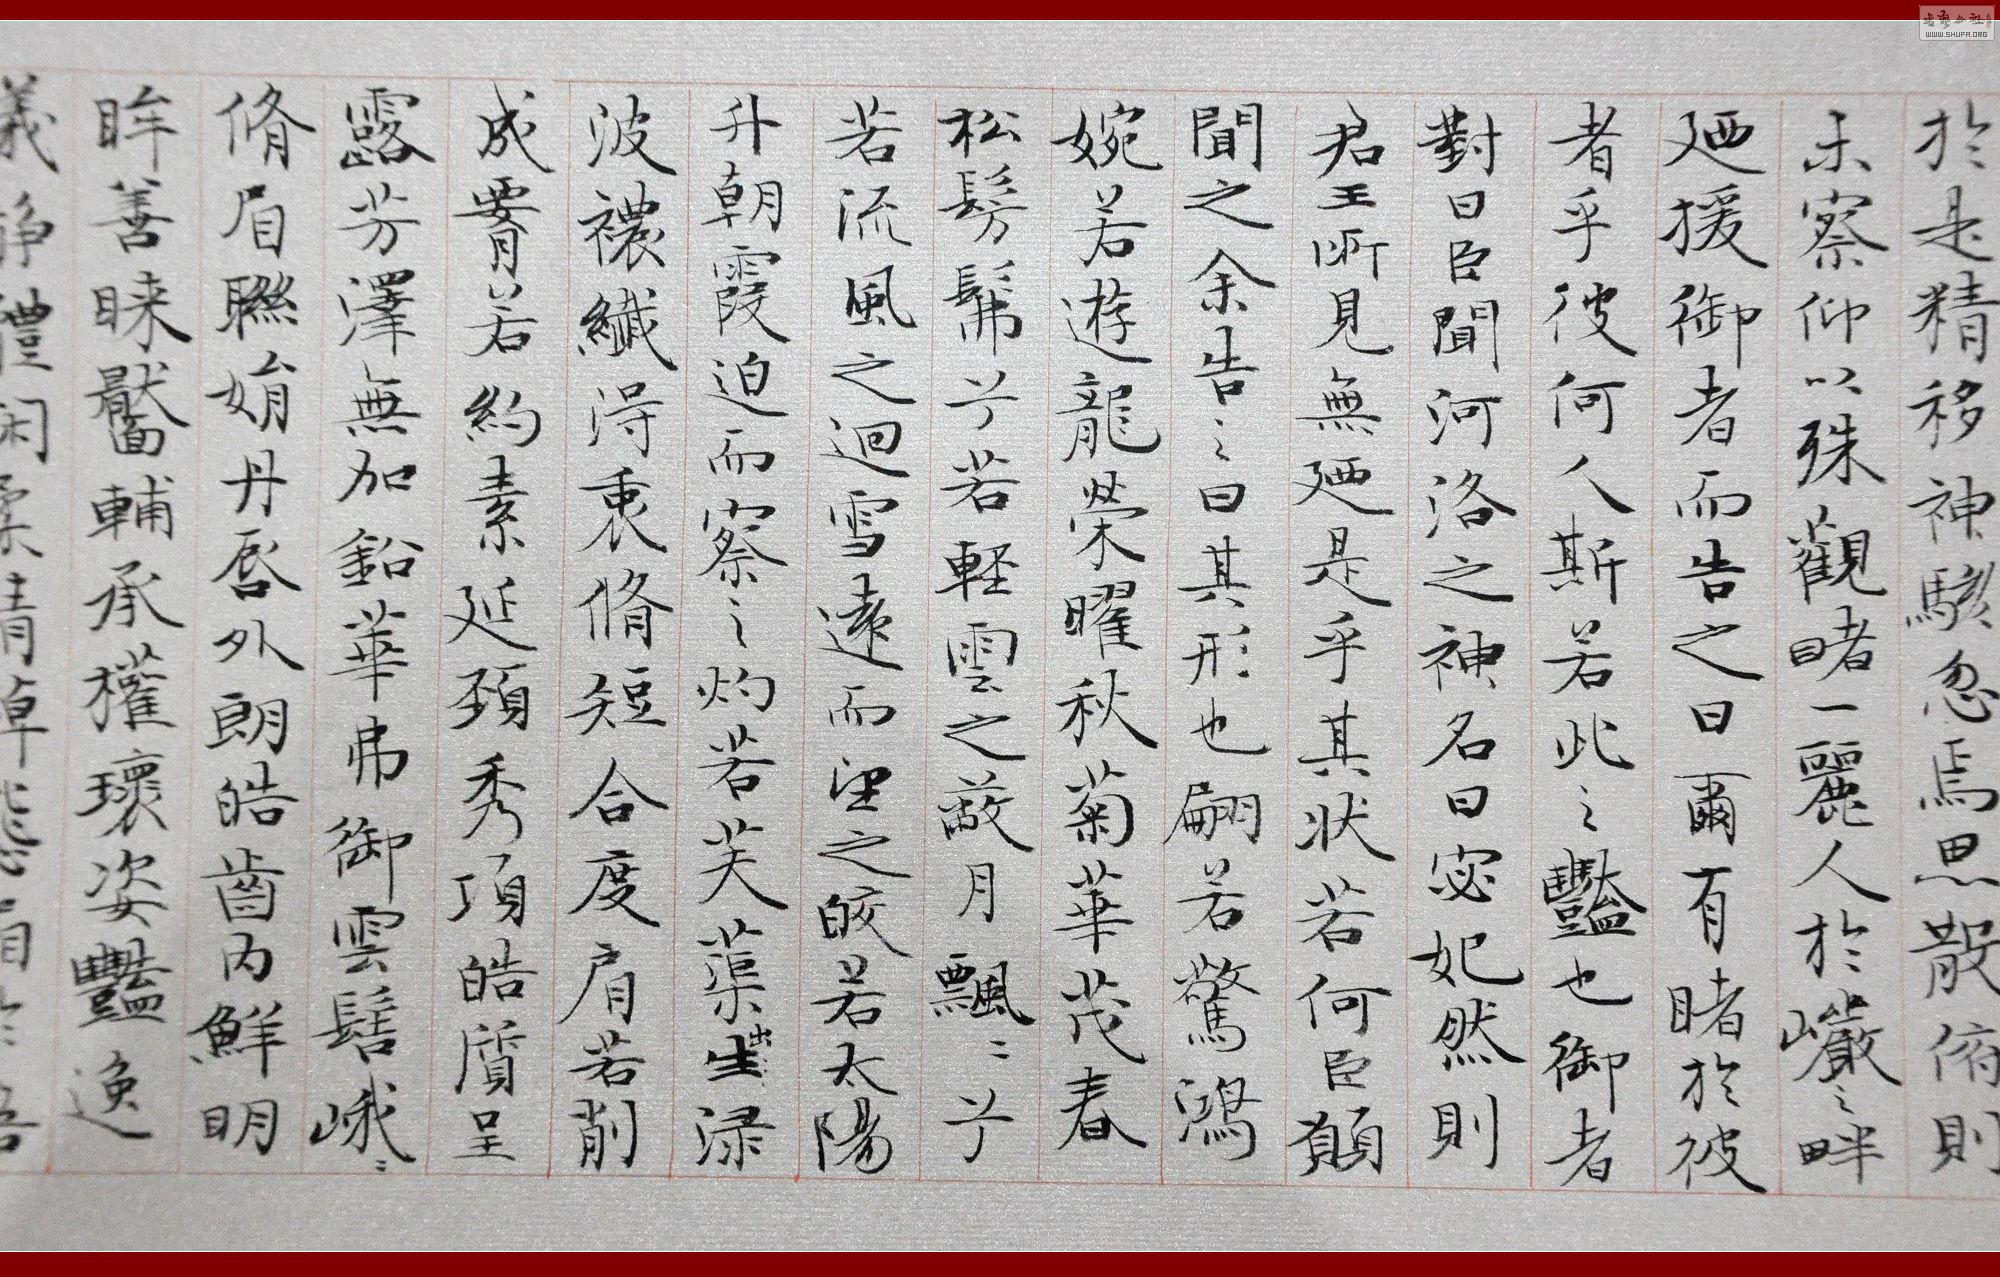 於是精移神駭忽焉思散俯則
未察仰以殊觀睹一麗人於巖之畔
廼援御者而告之曰爾有睹於彼
者乎彼何人斯若此之豔也御者
對曰臣聞河洛之神名曰宓妃然則
君王所見無廼是乎其狀若何臣願
聞之余告之曰其形也翩若驚鴻
婉若遊龍榮曜秋菊華茂春
松髣髴兮若輕雲之蔽月飄飄兮
若流風之迴雪遠而望之皎若太陽
升朝霞迫而察之灼若芙蕖出淥
波襛纖得衷脩短合度肩若削
成腰若約素延頸秀項皓質呈
露芳澤無加鉛華弗御雲髻峨峨
脩眉聯娟丹唇外朗皓齒內鮮明
眸善睞靨輔承權瓌姿豔逸
儀靜體閑柔情綽態
書法公社
WWW.SHUFA.ORG